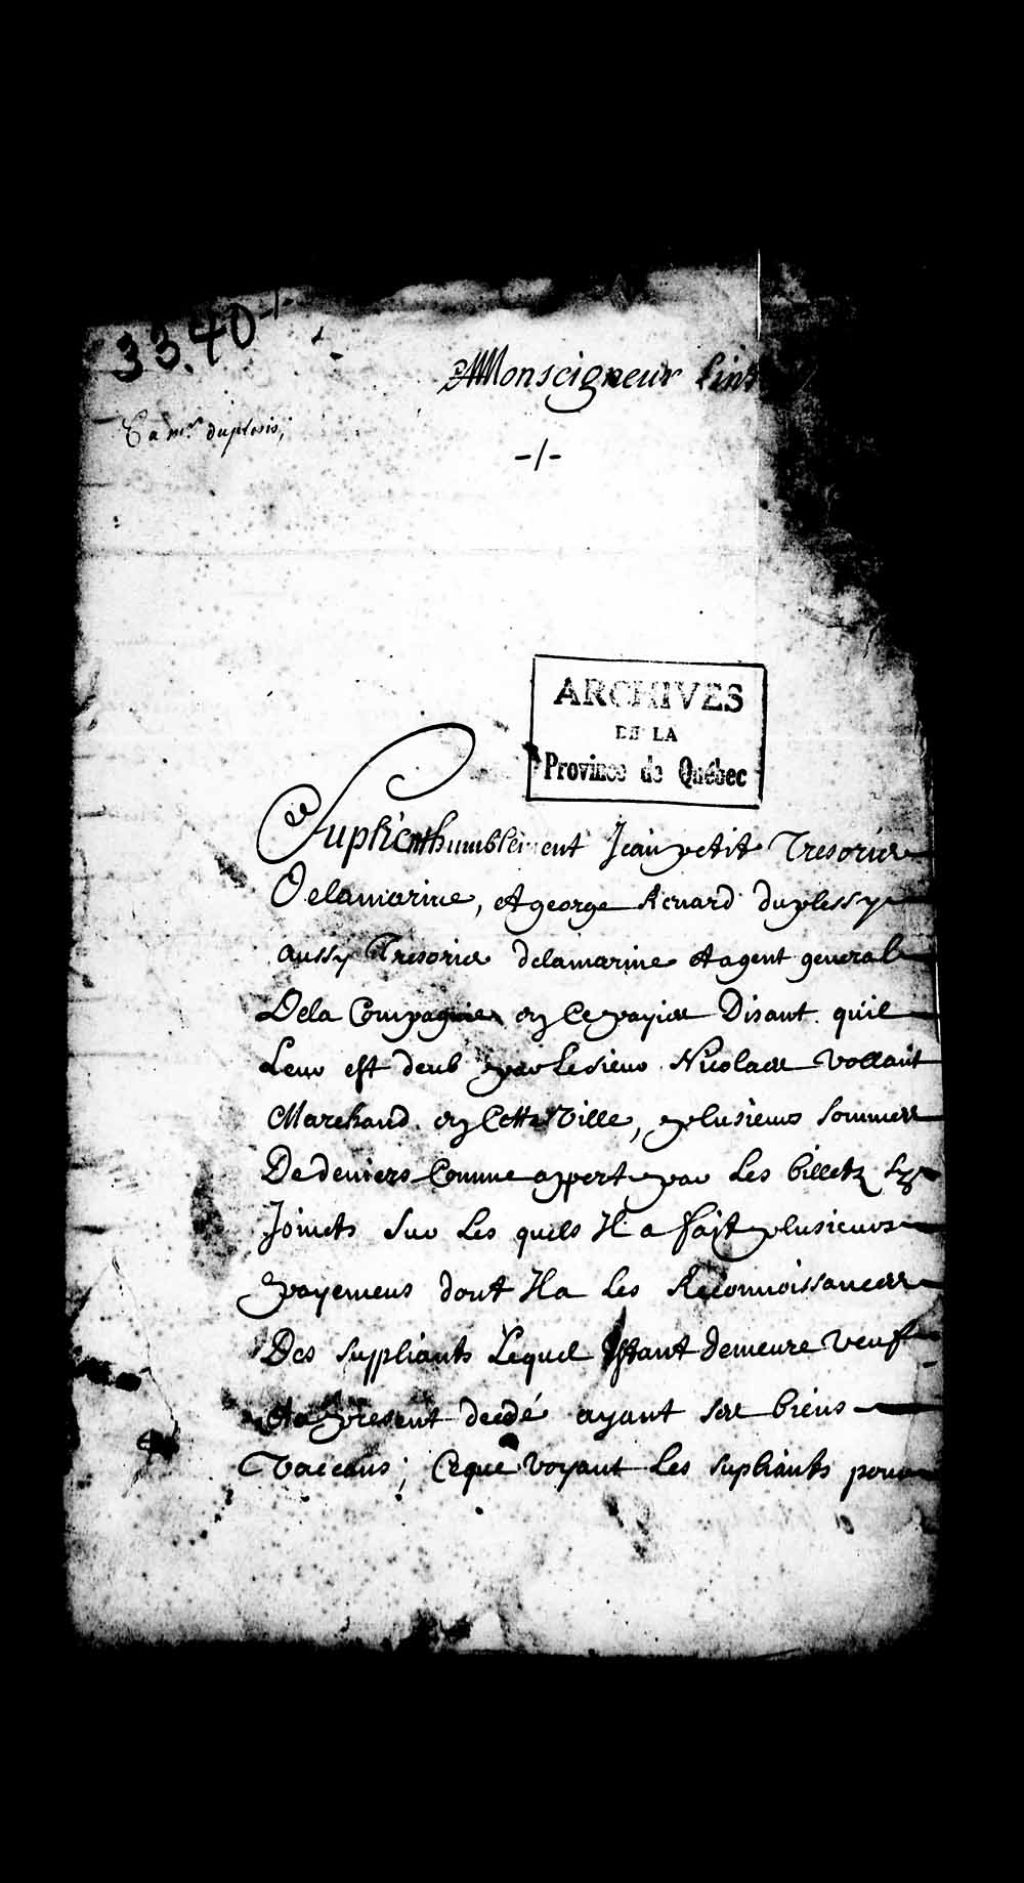 33.40-/-
A Monseigneur Lint
-/-
E a mr. duplesis;
ARCHIVES
DE LA
Province de Québec
Suplient humblement Jean petit Tresorier
Delamarine, et george Renard duplessy
aussy Tresorier delamarine et agent general
Dela Compagnie en Ce payis Disant quil
Leur est deub par Le sieur Nicolas vollant
Marchand en Cette Ville, plusieurs sommes
De deniers Comme appert par Les billetz Cy
Joincts Sur Les quels Il a fait plusieurs
payemens dont Il a Les Reconnoissances
Des supliants Lequel Estant demeure veuf
Et a present decedé ayant ses biens
Vaccans; Ceque voyant Les supliants pour